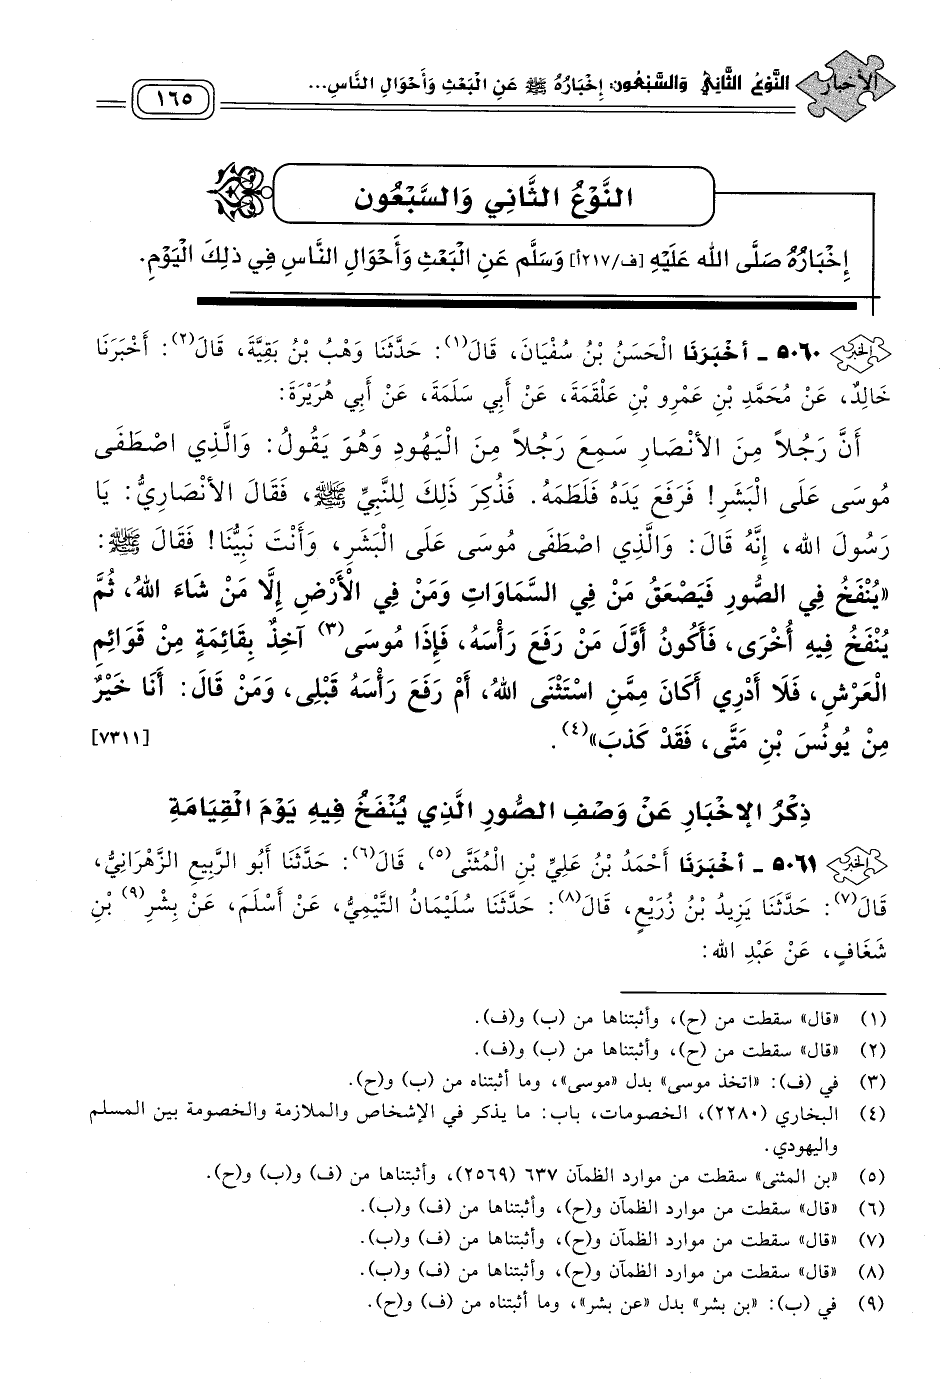 الأخبار
النَّوْعُ الثَّانِي وَالسَّبْعُون: إخْبَارُهُ ﷺ عَنِ الْبَعْثِ وَأَحْوَالِ النَّاسِ...
١٦٥
النَّوْعُ الثَّانِي وَالسَّبْعُون
إخْبَارُهُ صَلَّى الله عَلَيْهِ [ف/٢١٧أ] وَسَلَّم عَنِ الْبَعْثِ وَأَحْوَالِ النَّاسِ فِي ذلِكَ الْيَوْمِ.
الخبر ٥٠٦٠ - أخْبَرَنَا الْحَسَنُ بْنُ سُفْيَانَ، قَالَ(١): حَدَّثَنَا وَهْبُ بْنُ بَقِيَّةَ، قَالَ(٢): أَخْبَرَنَا
خَالِدٌ، عَنْ مُحَمَّدِ بْنِ عَمْرِو بْنِ عَلْقَمَةَ، عَنْ أَبِي سَلَمَةَ، عَنْ أَبِي هُرَيْرَةَ:
أَنَّ رَجُلاً مِنَ الأَنْصَارِ سَمِعَ رَجُلاً مِنَ الْيَهُودِ وَهُوَ يَقُولُ: وَالَّذِي اصْطَفَى
مُوسَى عَلَى الْبَشَرِ! فَرَفَعَ يَدَهُ فَلَطَمَهُ. فَذُكِرَ ذَلِكَ لِلنَّبِيِّ ﷺ، فَقَالَ الأَنْصَارِيُّ: يَا
رَسُولَ الله، إِنَّهُ قَالَ: وَالَّذِي اصْطَفَى مُوسَى عَلَى الْبَشَرِ، وَأَنْتَ نَبِيُّنَا! فَقَالَ ﷺ:
«يُنْفَخُ فِي الصُّورِ فَيَصْعَقُ مَنْ فِي السَّمَاوَاتِ وَمَنْ فِي الْأَرْضِ إِلَّا مَنْ شَاءَ اللهُ، ثُمَّ
يُنْفَخُ فِيهِ أُخْرَى، فَأَكُونُ أَوَّلَ مَنْ رَفَعَ رَأْسَهُ، فَإِذَا مُوسَى(٣) آخِذٌ بِقَائِمَةٍ مِنْ قَوَائِمِ
الْعَرْشِ، فَلَا أَدْرِي أَكَانَ مِمَّنِ اسْتَثْنَى اللهُ، أَمْ رَفَعَ رَأْسَهُ قَبْلِي، وَمَنْ قَالَ: أَنَا خَيْرٌ
مِنْ يُونُسَ بْنِ مَتَّى، فَقَدْ كَذبَ»(٤). [٧٣١١]
ذِكْرُ الإخْبَارِ عَنْ وَصْفِ الصُّورِ الَّذِي يُنْفَخُ فِيهِ يَوْمَ الْقِيَامَةِ
الخبر ٥٠٦١ - أخْبَرَنَا أَحْمَدُ بْنُ عَلِيِّ بْنِ الْمُثَنَّى(٥)، قَالَ(٦): حَدَّثَنَا أَبُو الرَّبِيعِ الزَّهْرَانِيُّ،
قَالَ(٧): حَدَّثَنَا يَزِيدُ بْنُ زُرَيْعٍ، قَالَ(٨): حَدَّثَنَا سُلَيْمَانُ التَّيْمِيُّ، عَنْ أَسْلَمَ، عَنْ بِشْرِ(٩) بْنِ
شَغَافٍ، عَنْ عَبْدِ الله:
(١) «قال» سقطت من (ح)، وأثبتناها من (ب) و(ف).
(٢) «قال» سقطت من (ح)، وأثبتناها من (ب) و(ف).
(٣) في (ف): «اتخذ موسى» بدل «موسى»، وما أثبتناه من (ب) و(ح).
(٤) البخاري (٢٢٨٠)، الخصومات، باب: ما يذكر في الإشخاص والملازمة والخصومة بين المسلم
واليهودي.
(٥) «بن المثنى» سقطت من موارد الظمآن ٦٣٧ (٢٥٦٩)، وأثبتناها من (ف) و(ب) و(ح).
(٦) «قال» سقطت من موارد الظمآن و(ح)، وأثبتناها من (ف) و(ب).
(٧) «قال» سقطت من موارد الظمآن و(ح)، وأثبتناها من (ف) و(ب).
(٨) «قال» سقطت من موارد الظمآن و(ح)، وأثبتناها من (ف) و(ب).
(٩) في (ب): «بن بشر» بدل «عن بشر»، وما أثبتناه من (ف) و(ح).